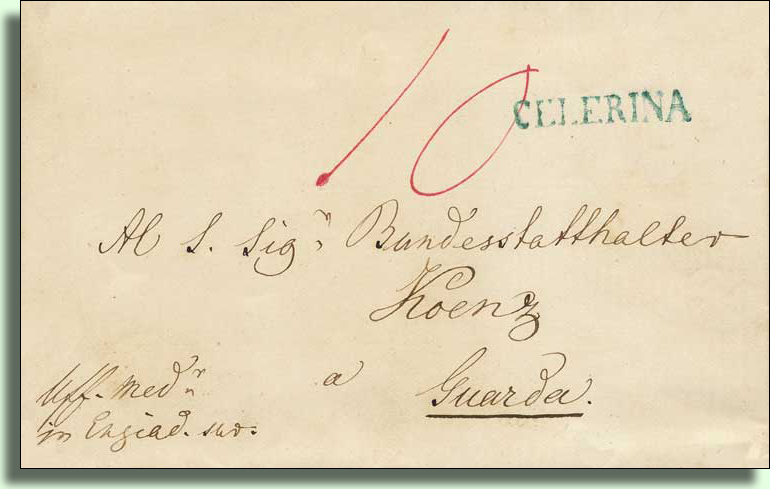 10
CELERINA
Al S. Sigr. Bundesstatthalter
Koenz
a
Guarda.
Uff. Medn
in Engiad. sur: